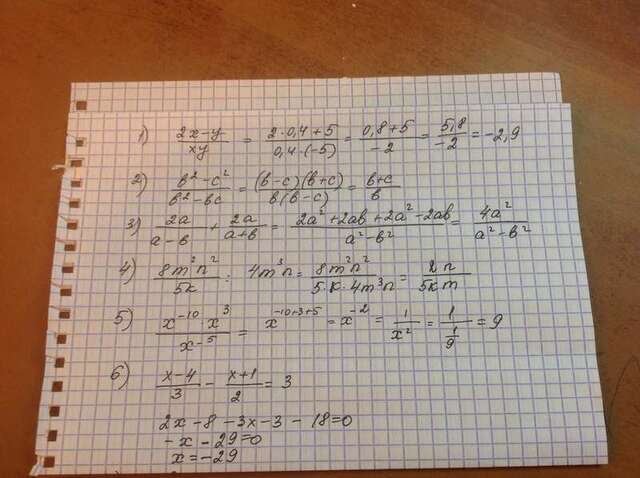 1) (2x-y)/(xy) = (2·0,4+5)/(0,4·(-5)) = (0,8+5)/(-2) = 5,8/(-2) = -2,9
2) (в²-c²)/(в²-вc) = ((в-c)(в+c))/(в(в-c)) = (в+c)/в
3) 2a/(a-в) + 2a/(a+в) = (2a²+2aв+2a²-2aв)/(a²-в²) = 4a²/(a²-в²)
4) 8m²n²/5к : 4m³n = 8m²n²/(5·к·4m³n) = 2n/(5кm)
5) (x⁻¹⁰·x³)/x⁻⁵ = x⁻¹⁰⁺³⁺⁵ = x⁻² = 1/x² = 1/(1/9) = 9
6) (x-4)/3 - (x+1)/2 = 3
2x-8-3x-3-18=0
-x-29=0
x=-29